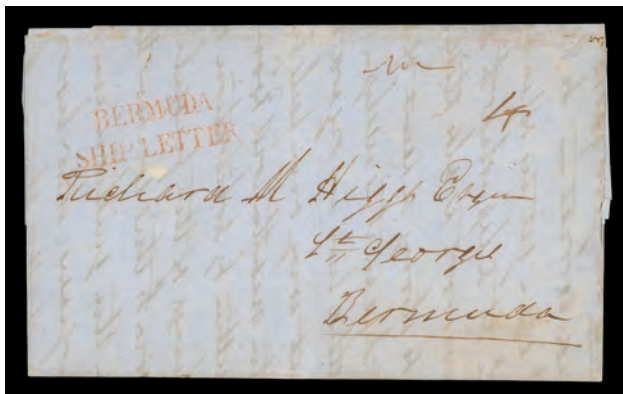 4
BERMUDA
SHIP LETTER
Richard M Higgs Esqr
St George
Bermuda